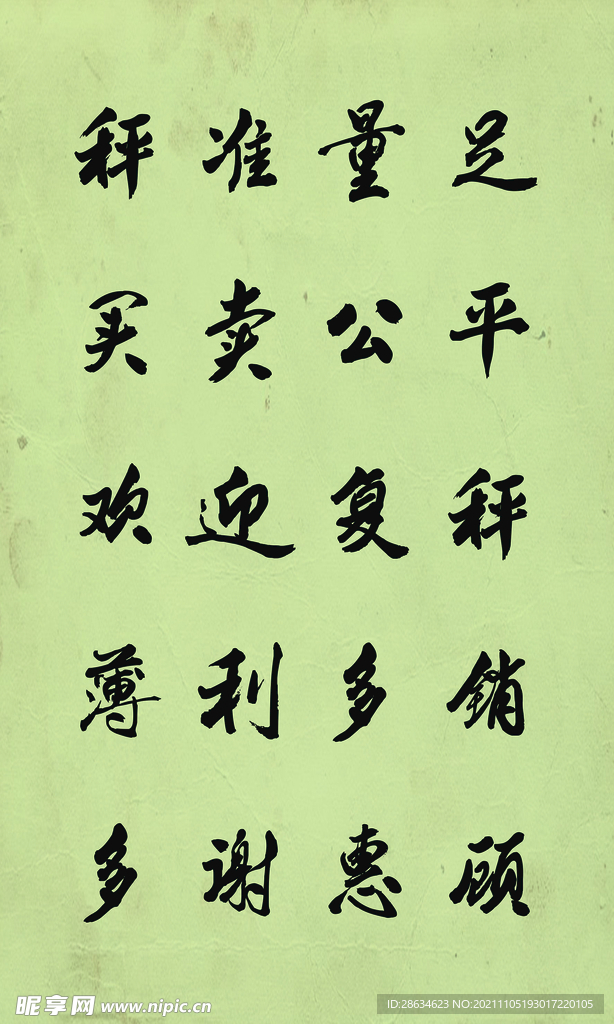 秤准量足
买卖公平
欢迎复秤
薄利多销
多谢惠顾
昵享网 www.nipic.cn
ID:28634623 NO:20211105193017220105